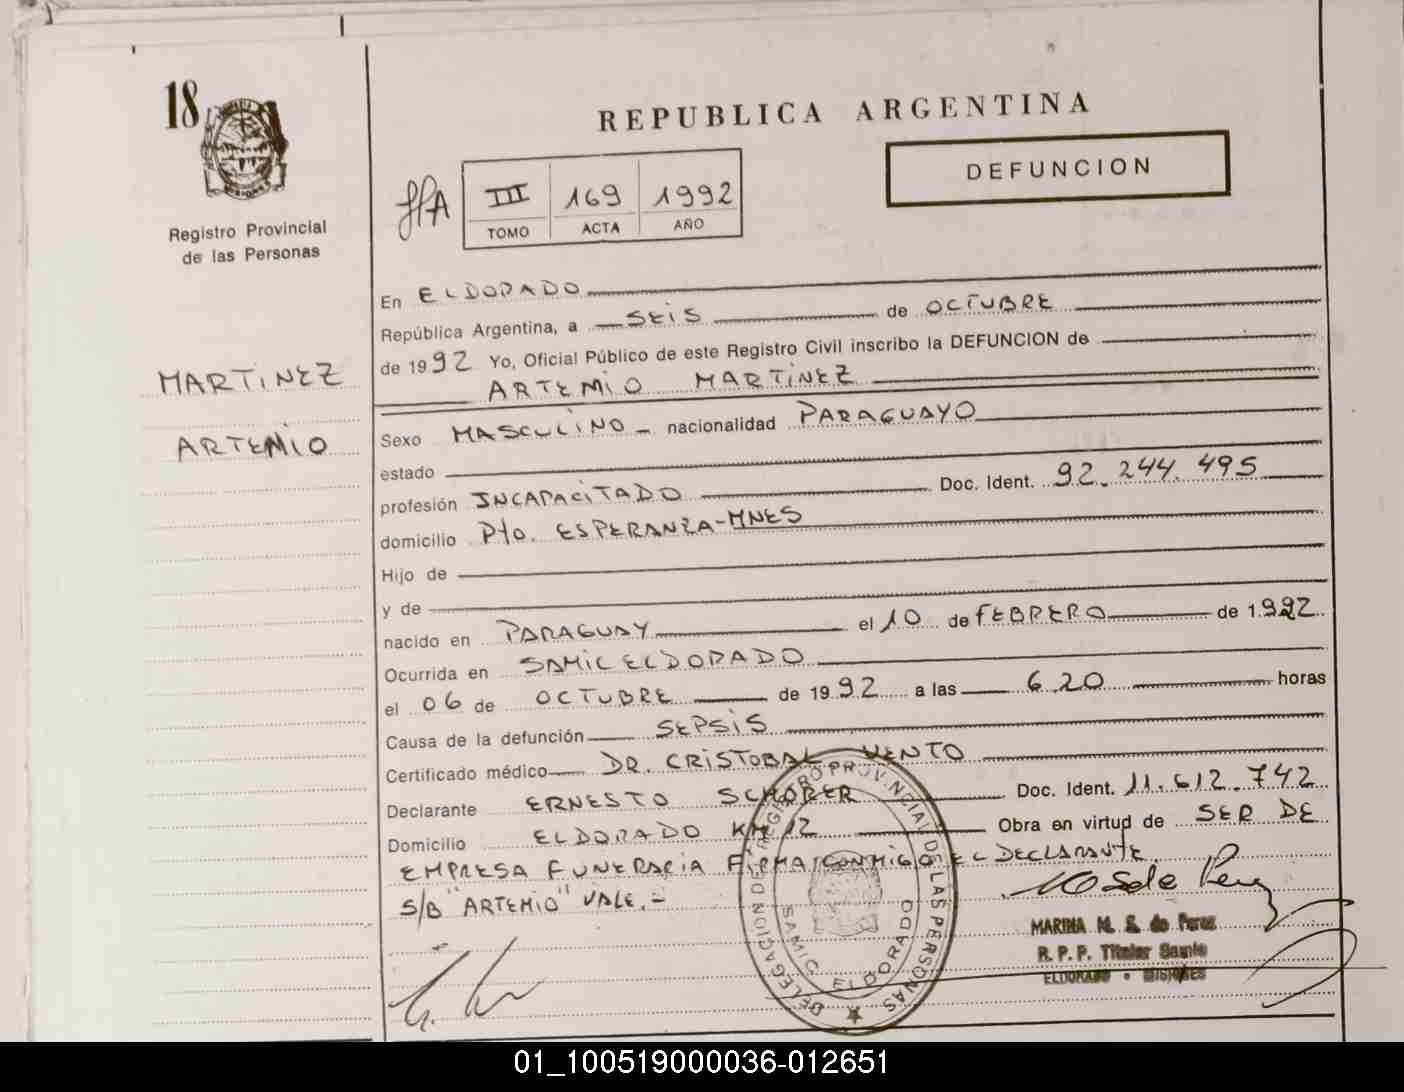 18
Registro Provincial
de las Personas
MARTINEZ
ARTEMIO
REPUBLICA ARGENTINA
DEFUNCION
III 169 1992
TOMO ACTA AÑO
En ELDORADO
República Argentina, a SEIS de OCTUBRE
de 1992 Yo, Oficial Público de este Registro Civil inscribo la DEFUNCION de
ARTEMIO MARTINEZ
Sexo MASCULINO - nacionalidad PARAGUAYO
estado
profesión INCAPACITADO Doc. Ident. 92.244.495
domicilio Pto. ESPERANZA-MNES
Hijo de
y de
nacido en PARAGUAY el 10 de FEBRERO de 1.992
Ocurrida en SAMIC ELDORADO
el 06 de OCTUBRE de 1992 a las 6.20 horas
Causa de la defunción SEPSIS
Certificado médico DR. CRISTOBAL VENTO
Declarante ERNESTO SCHORER Doc. Ident. 11.612.742
Domicilio ELDORADO KM 12 Obra en virtud de SER DE
EMPRESA FUNERARIA FIRMA CONMIGO EL DECLARANTE
S/B "ARTEMIO" VALE.-
DELEGACION DE REGISTRO PROVINCIAL DE LAS PERSONAS
SAMIC ELDORADO
MARINA M. S. de Perez
R. P. P. Titular Samic
ELDORADO - MISIONES
01_100519000036-012651